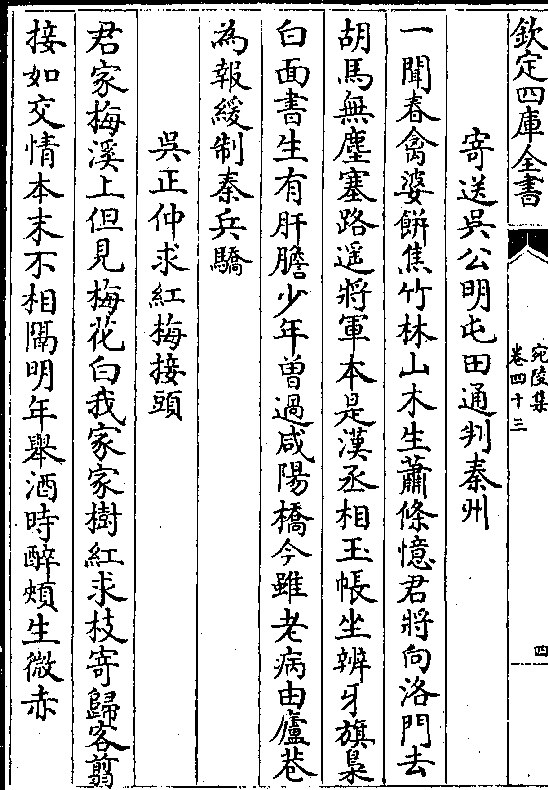 欽定四庫全書
宛陵集
卷四十三
四
寄送吳公明屯田通判秦州
一聞春禽婆餅焦竹林山木生蕭條憶君將向洛門去
胡馬無塵塞路遥將軍本是漢丞相玉帳坐辨牙旗梟
白面書生有肝膽少年曽過咸陽橋今雖老病由廬巷
為報緩制秦兵驕
吳正仲求紅梅接頭
君家梅溪上但見梅花白我家家樹紅求枝寄歸客翦
接如交情本末不相隔明年舉酒時醉頰生微赤